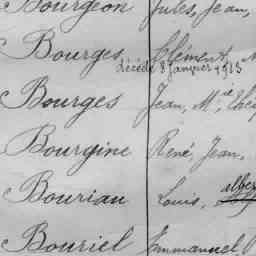 Bourgeon Jules, Jean,
Bourges Clément,
décédé 8 Janvier 1913
Bourges Jean, Mie
Bourgine René, Jean,
Bouriau Louis,
Bouriel Emmanuel